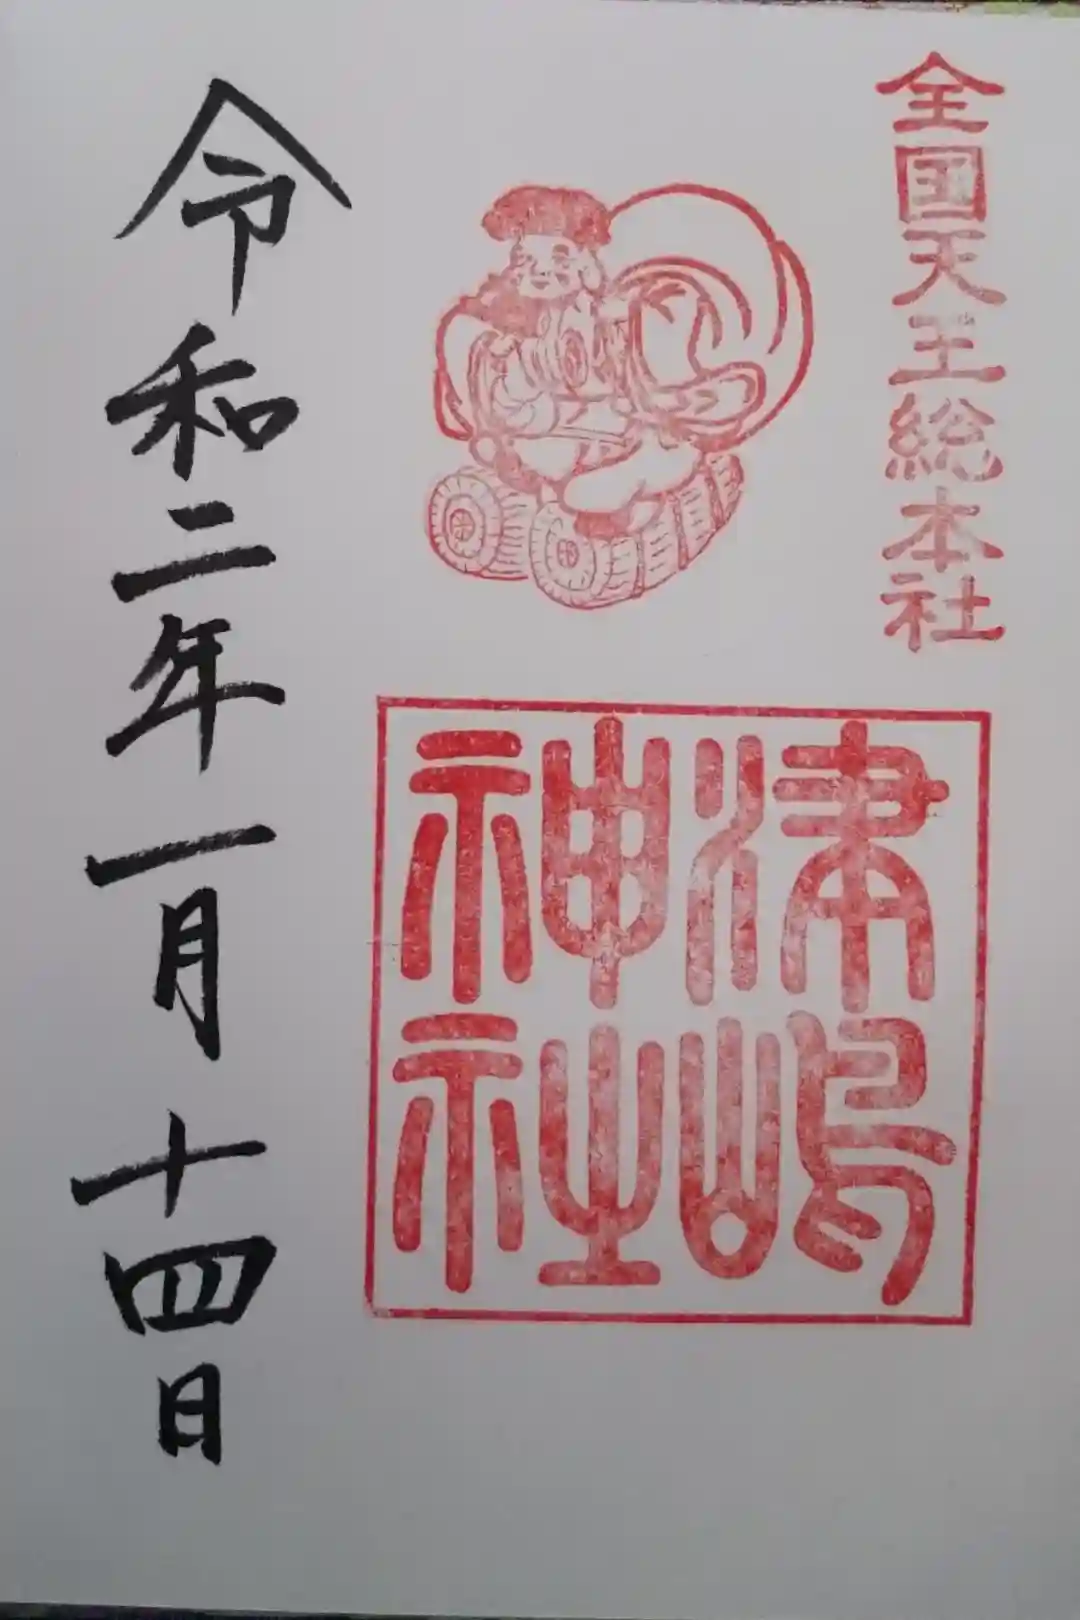 全国天王総本社
津嶋
神社
令和二年一月十四日